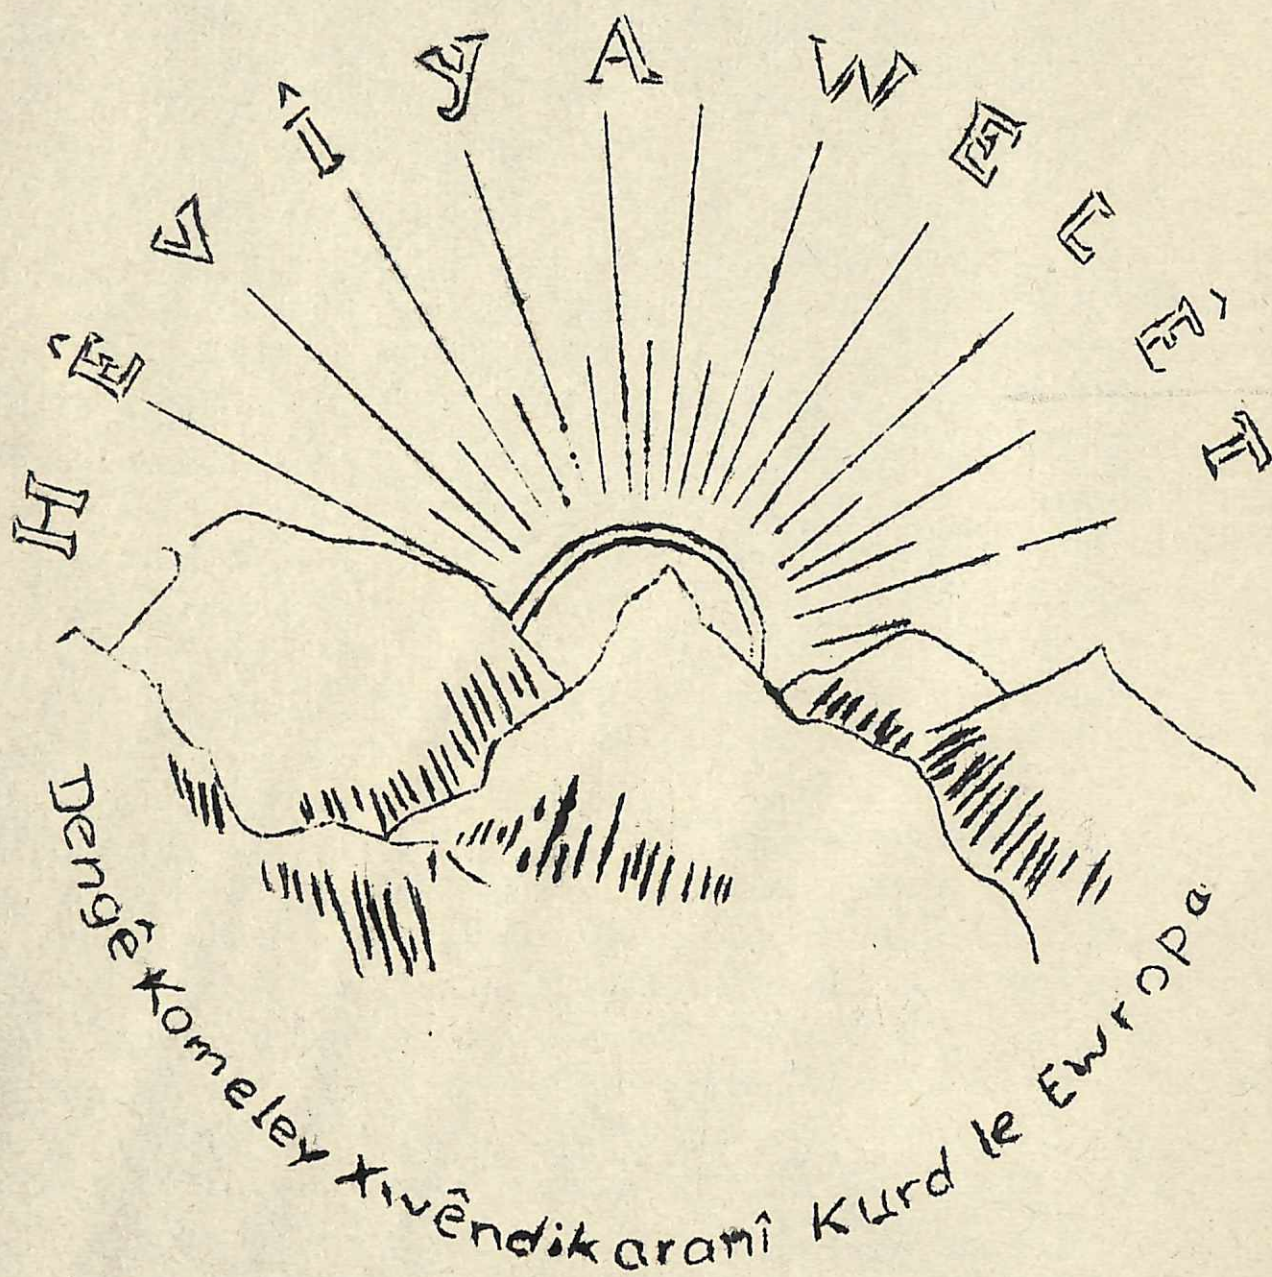 HÊVÎYA WELÊT
Dengê Komeley Xivêndikaranî Kurd le Ewropa